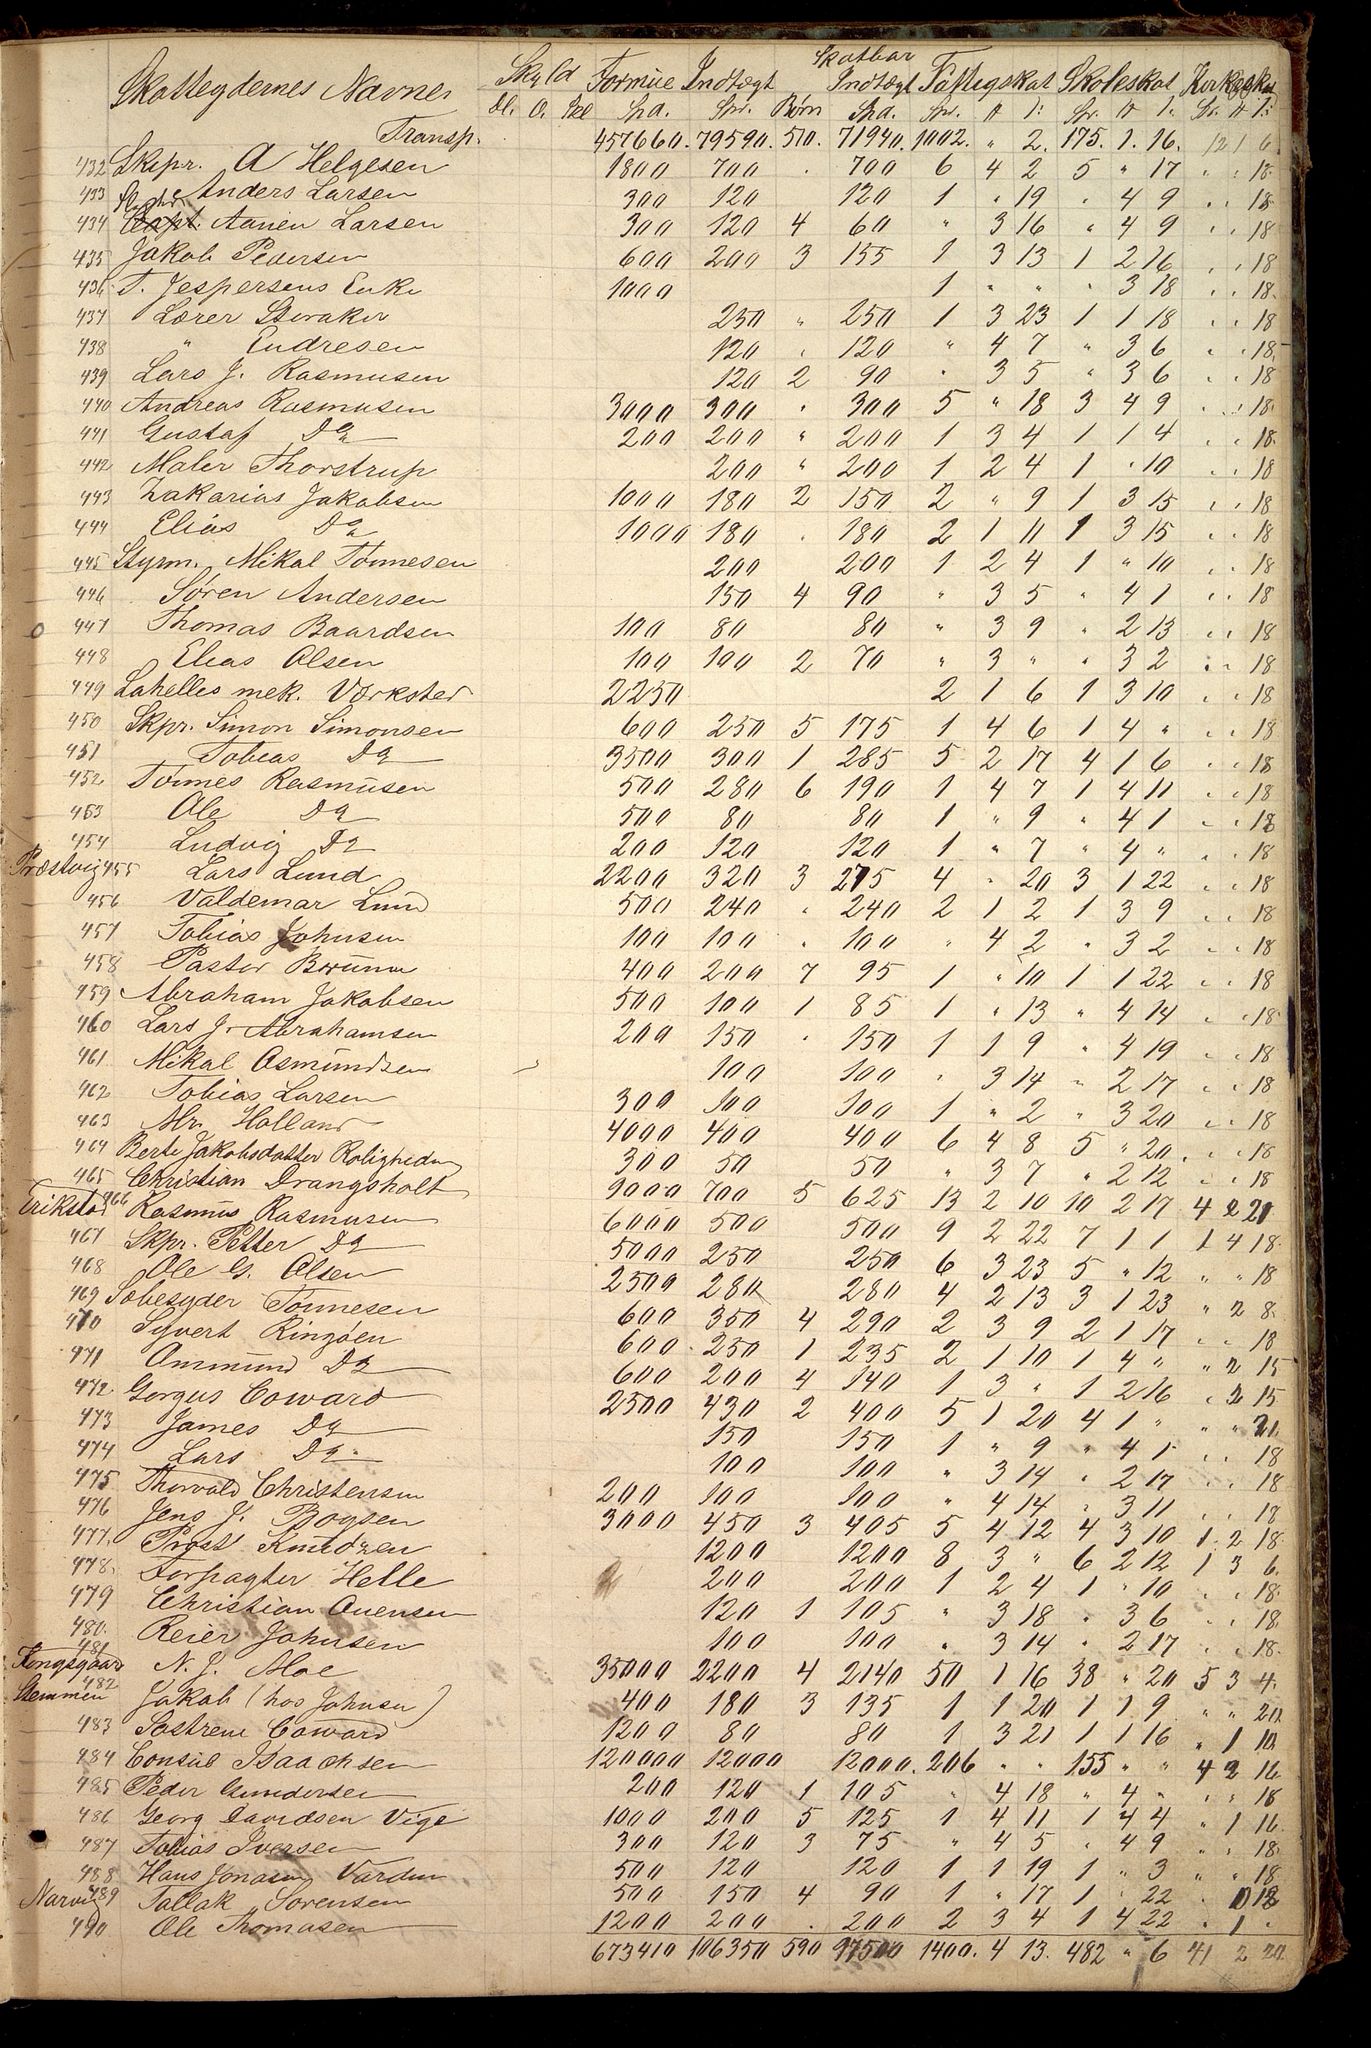 Skatteydernes Navne. Skyld Formue Indtægt Skatbar Indtægt Fattigskat Skoleskat Kirkeskat
Dl. O. Skl Spd. Spr. Børn Spd. Spr. # s: Spr. # s: Sp. # s:
Transp. 457660. 79590. 510. 71940. 1002. " 2. 175. 1. 16. 12 1 6
432 Skipr. A Helgesen 1800 700 . 700 6 4 2 5 " 17 " " 18
433 Anders Larsen 300 120 120 1 " 19 " 4 9 " " 18
434 Aanen Larsen 300 120 4 60 " 3 16 " 4 9 " " 18
435 Jakob Pedersen 600 200 3 155 1 3 13 1 2 16 " " 18
436 T. Jespersens Enke 1000 1 " " " 3 18 " " 18
437 Lærer Steraker 250 " 250 1 3 23 1 1 18 " " 18
438 " Endresen 120 . 120 " 4 7 " 3 6 " " 18
439 Lars J. Rasmusen 120 2 90 " 3 5 " 3 6 " " 18
440 Andreas Rasmusen 3000 300 . 300 5 " 18 3 4 9 " " 18
441 Gustaf Do 200 200 " 200 1 3 4 1 1 4 " " 18
442 Maler Thorstrup 200 " 200 1 2 4 1 " 10 " " 18
443 Zakarias Jakobsen 1000 180 2 150 2 " 9 1 3 15 " " 18
444 Elias Do 1000 180 . 180 2 1 11 1 3 15 " " 18
445 Styrm. Mikal Tønnesen 200 200 1 2 4 1 " 10 " " 18
446 Søren Andersen 150 4 90 " 3 5 " 4 1 " " 18
447 Thomas Baardsen 100 80 80 " 3 9 " 2 13 " " 18
448 Elias Olsen 100 100 2 70 " 3 " " 3 2 " " 18
449 Lahelles mek. Værksted 2250 2 1 6 1 3 10 " " 18
450 Skpr. Simon Simonsen 600 250 5 175 1 4 6 1 4 " " " 18
451 Tobias Do 3500 300 1 285 5 2 17 4 1 6 " " 18
452 Tønnes Rasmusen 500 280 6 190 1 4 7 1 4 11 " " 18
453 Ole Do 500 80 80 1 " 9 " 4 1 " " 18
454 Ludvig Do 200 120 120 1 " 7 " 4 " " " 18
Præstvig 455 Lars Lund 2200 320 3 275 4 " 20 3 1 22 " " 18
456 Valdemar Lund 500 240 " 240 2 1 2 1 3 9 " " 18
457 Tobias Johnsen 100 100 " 100 " 4 2 " 3 2 " " 18
458 Pastor Bruun 400 200 7 95 1 " 10 1 1 22 " " 18
459 Abraham Jakobsen 500 100 1 85 1 " 13 " 4 14 " " 18
460 Lars J. Abrahamsen 200 150 . 150 1 1 9 " 4 19 " " 18
461 Mikal Osmundsen 100 100 " 3 14 " 2 17 " " 18
462 Tobias Larsen 300 100 100 1 " 2 " 3 20 " " 18
463 Mr. Holland 4000 400 400 6 4 8 5 " 20 " " 18
464 Berte Jakobsdatter Roligheden 300 50 50 " 3 7 " 2 12 " " 18
465 Christian Drangsholt 9000 700 5 625 13 2 10 10 2 17 4 2 21
Erikstad 466 Rasmus Rasmusen 6000 500 500 9 2 22 7 1 1 1 4 18
467 Skpr. Petter Do 5000 250 250 6 3 23 5 " 12 " " 18
468 Ole G. Olsen 2500 280 280 4 2 13 3 1 23 " 2 8
469 Sæbesyder Tønnesen 600 350 4 290 2 3 9 2 1 17 " " 18
470 Syvert Ringøen 600 250 1 235 2 1 10 1 4 " " 2 15
471 Ommund Do 600 200 4 140 1 3 " 1 2 16 " 2 15
472 Gorgus Coward 2500 430 2 400 5 1 20 4 1 " " " 21
473 James Do 150 150 1 " 9 " 4 1 " " 18
474 Lars Do 100 100 " 3 14 " 2 17 " " 18
475 Thorvald Christensen 200 100 100 " 4 14 " 3 11 " " 18
476 Jens J. Boysen 3000 450 3 405 5 4 12 4 3 10 1 2 18
477 Prost Knudzen 1200 1200 8 3 " 6 2 12 1 3 6
478 Forpagter Helle 200 200 1 2 4 1 " 10 " " 18
479 Christian Ouensen 120 1 105 " 3 18 " 3 6 " " 18
480 Reier Johnsen 100 100 " 3 14 " 2 17 " " 18
Kongsgaard 481 N. J. Moe 35000 2200 4 2140 50 1 16 38 " 20 5 3 4
Stemmen 482 Jakob (hos Johnsen) 400 180 3 135 1 1 20 1 1 9 " " 20
483 Pastrene Coward 1200 80 80 1 3 21 1 1 16 " 1 10
484 Consul Isaachsen 120000 12000 12000. 206 " " 155 " " 4 2 16
485 Peder Gundersen 200 120 1 105 " 4 18 " 4 " " " 18
486 Georg Davidsen Vige 1000 200 5 125 1 4 11 1 4 4 " 1 16
487 Tobias Iversen 300 120 3 75 " 4 5 " 4 9 " " 18
488 Hans Jonasen Varden 500 120 120 1 1 19 1 " 3 " " 18
Narvig 489 Tallak Sørensen 500 150 4 90 1 " 17 1 " 22 " 0 18
490 Ole Thomasen 1200 200 . 200 2 3 4 1 4 22 " 1 "
673410 106350 590 97500 1400. 4 13. 482 " 6 41 2 22